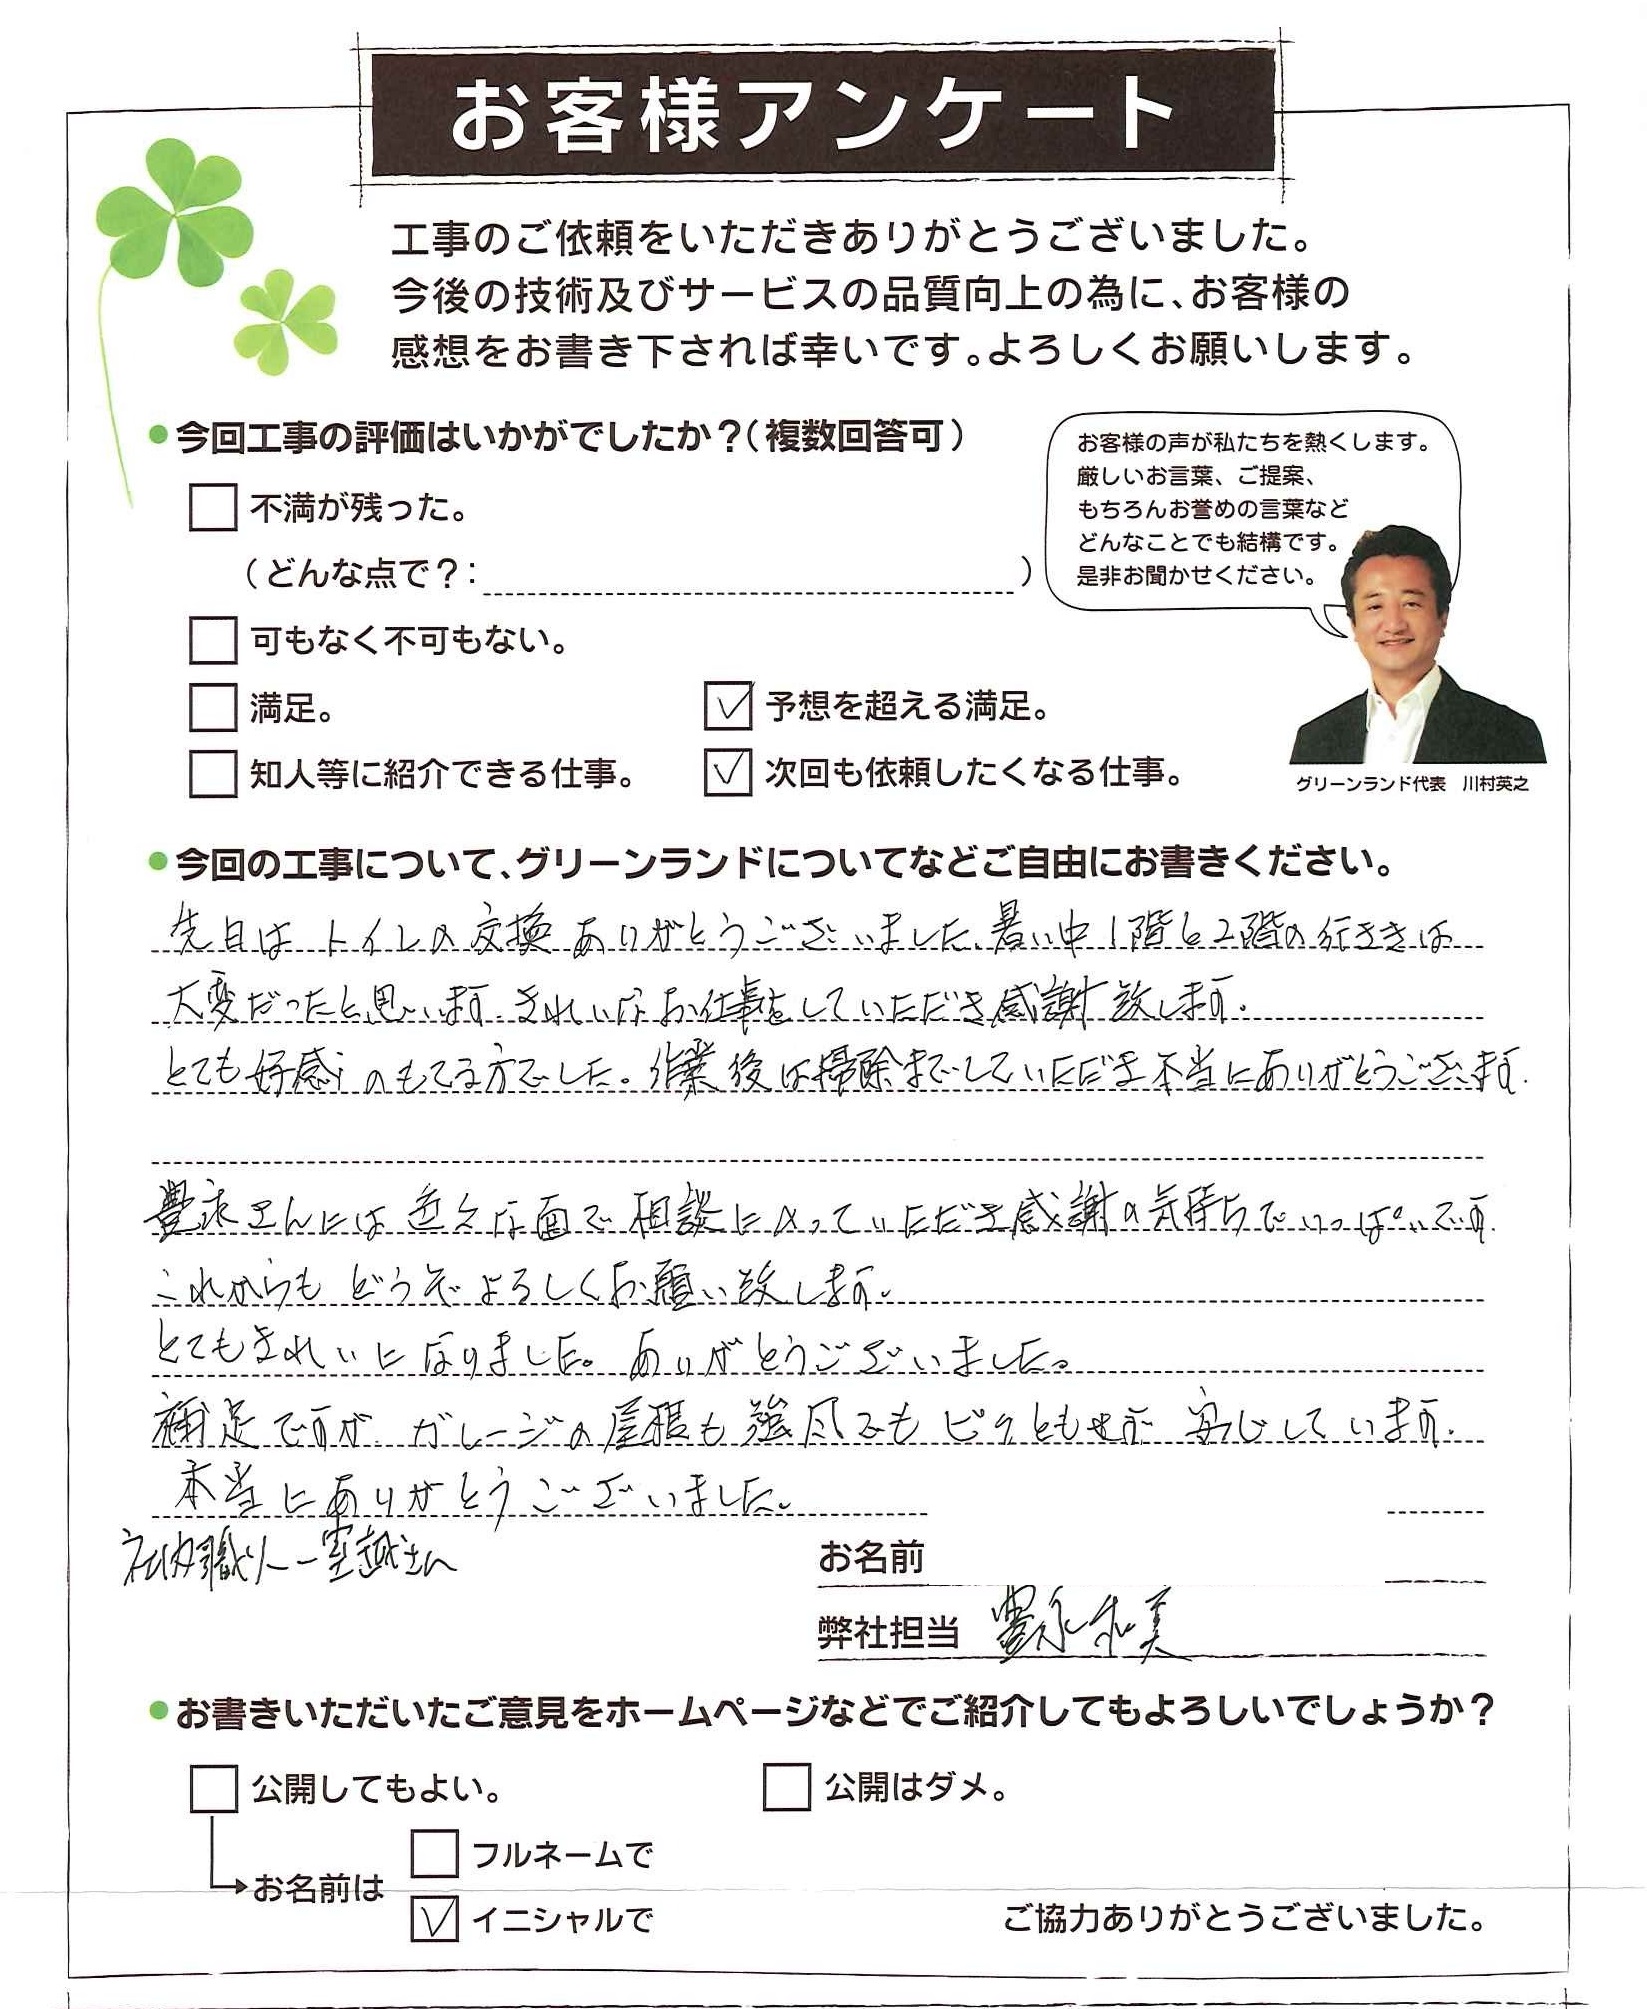 お客様アンケート
工事のご依頼をいただきありがとうございました。
今後の技術及びサービスの品質向上の為に、お客様の
感想をお書き下されば幸いです。よろしくお願いします。
●今回工事の評価はいかがでしたか?(複数回答可)
お客様の声が私たちを熱くします。
厳しいお言葉、ご提案、
もちろんお誉めの言葉など
どんなことでも結構です。
是非お聞かせください。
グリーンランド代表 川村英之
不満が残った。
(どんな点で?: )
可もなく不可もない。
満足。
予想を超える満足。
知人等に紹介できる仕事。
次回も依頼したくなる仕事。
●今回の工事について、グリーンランドについてなどご自由にお書きください。
先日は トイレの交換 ありがとうございました、暑い中 1階と2階の行ききは
大変だったと思います. きれいなお仕事をしていただき感謝致します.
とても好感のもてる方でした。作業後は掃除までしていただき本当にありがとうございます.
豊永さんには色々な面で相談にのっていただき感謝の気持ちでいっぱいです.
これからも どうぞよろしくお願い致します.
とてもきれいになりました。ありがとうございました。
補足ですが ガレージの屋根も強風でもビクともせず 安心しています.
本当にありがとうございました。
社内職人 室越さん
お名前
弊社担当 豊永和美
●お書きいただいたご意見をホームページなどでご紹介してもよろしいでしょうか?
公開してもよい。
公開はダメ。
お名前は
フルネームで
イニシャルで
ご協力ありがとうございました。